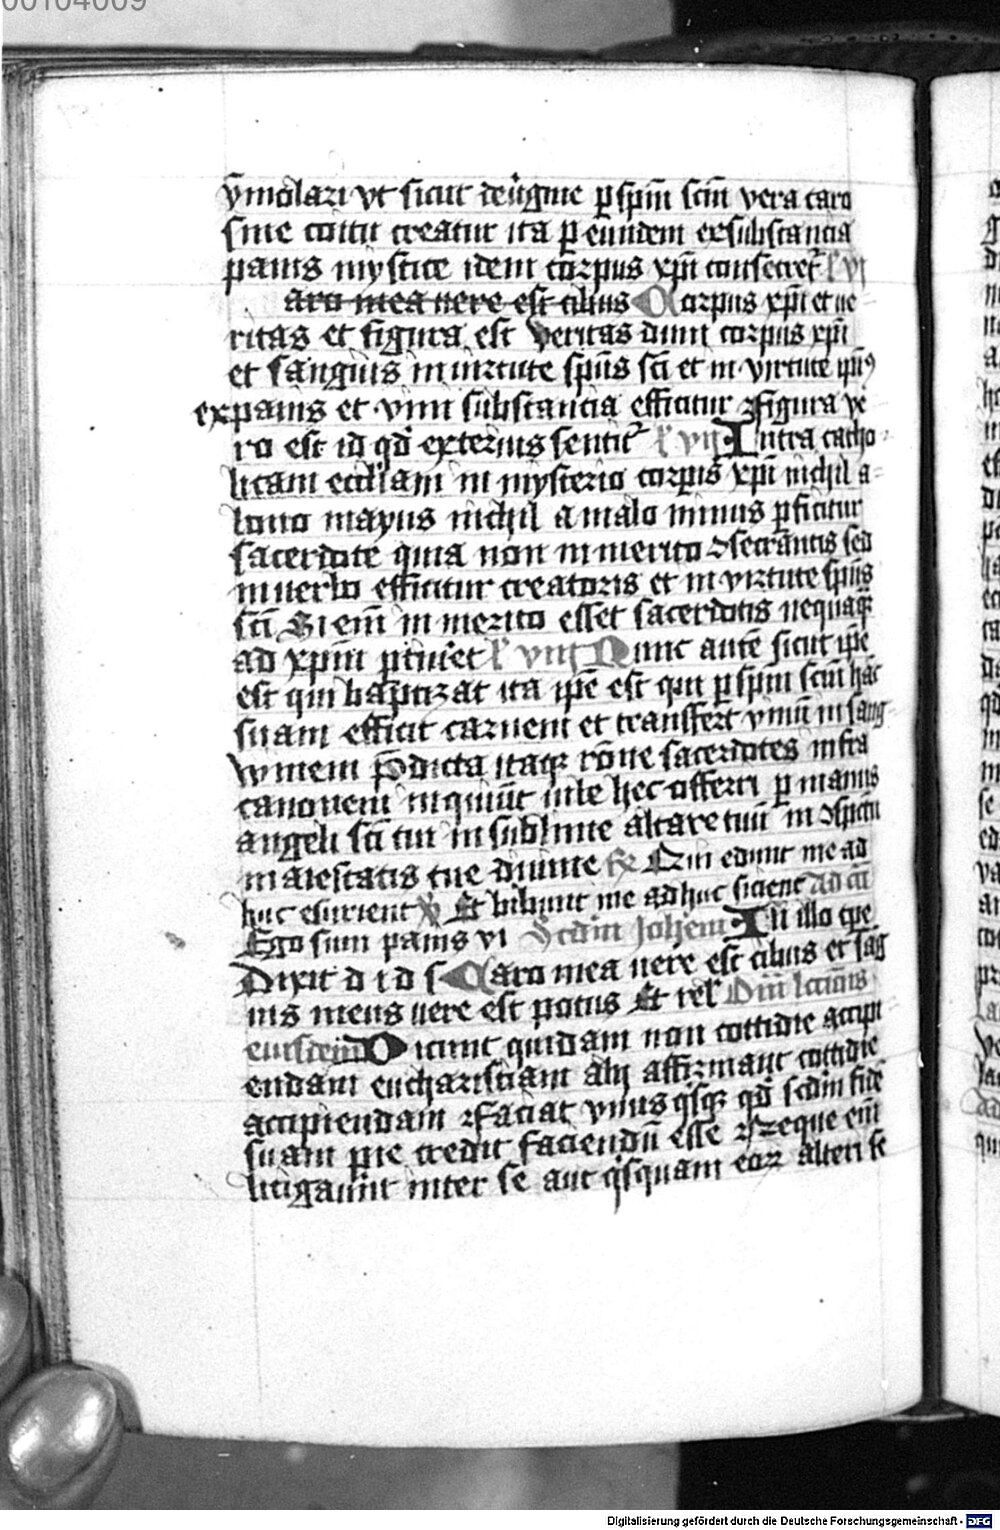 00104009
ẏmolari vt sicut de v̾gine ꝑ sp̅m sc̅m vera caro
sine coitu creatur ita ꝑ eundem ex substancia
panis mystice idem corpus xp̅i consecret᷑ l̾ vi
aro mea uere est cibus Corpus xp̅i et ue
ritas et figura est Veritas dum corpus xp̅i
et sanguis in uirtute sp̅us sc̅i et in virtute ip̅iꝰ
ex panis et vini substancia efficitur ꝫ figura ve
ro est id qd̅ exterius sentit᷑ l̾ vii Intra catho
licam eccl̅iam in mysterio corpis xp̅i nichil a
bono mayus nichil a malo minus ꝑficitur
sacerdote quia non in merito ꝯsecrantis sed
in uerbo efficitur creatoris et in virtute sp̅us
sc̅i Si em̅ in merito esset sacerdotis nequaq̅
ad xp̅m ꝑtin̾et l̾ viii Nunc aute̅ sicut ip̅e
est qui baptizat ita ip̅e est qui ꝑ sp̅m sc̅m hac̅
suam efficit carnem et transfert vinu̅ in sang
winem p̅dicta itaqꝫ ro̅ne sacerdotes infra
canonem inquiu̅t iube hec offerri ꝑ manus
angeli sc̅i tui in sublime altare tuu̅ in ꝯspectu
maiestatis tue diuine Qui edunt me ad
huc esurient Et bibunt me adhuc sicient Ad cu̅
Ego sum panis vi Scd̅m Joh̅em In illo tp̅e
Dixit d i d s Caro mea uere est cibus et sag̅
nis meus uere est potus Et rel̾ Om̅ lc̅onis
eiusdem Dicunt quidam non cottidie accipi
endam eucharistiam alij affirmant cottidie
accipiendam ꝫ faciat vnus q̾sqꝫ qd̅ scd̅m fide̅
suam pie credit faciendu̅ esse ꝫ neque em̅
litigaueru̅t inter se aut q̾squam eoꝝ alteri se
Digitalisierung gefördert durch die Deutsche Forschungsgemeinschaft - DFG